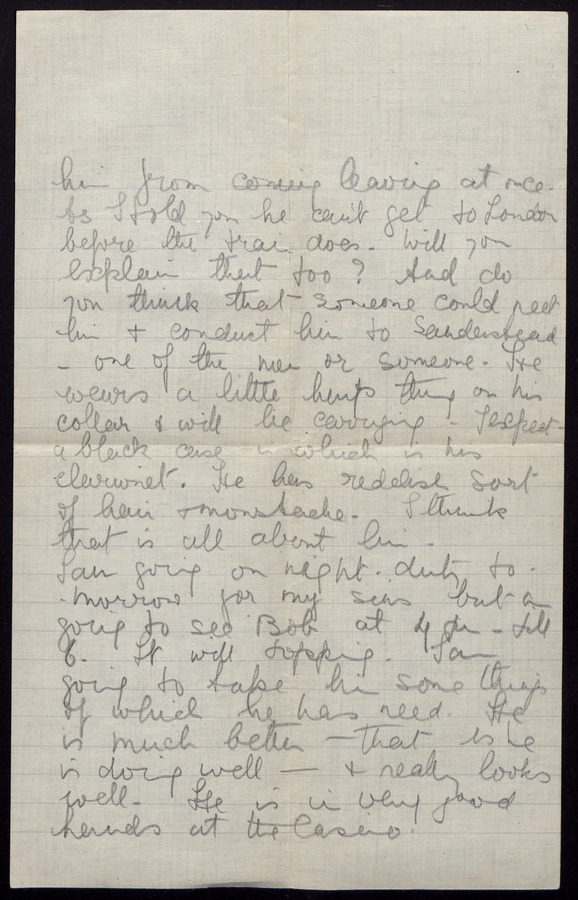 him from coming leaving at once.
As I told you he can't get to London
before the train does. Will you
explain that too? And do
you think that someone could meet
him & conduct him to Sanderstead
- one of the men or someone. He
wears a little harp thing on his
collar & will be carrying - I expect -
a black case in which is his
clarionet. He has reddish sort
of hair & moustache. I think
that is all about him.
I am going on night. duty to-
-morrow for my sins but am
going to see Bob at 4 pm - till
6. It will topping. I am
going to take him some things
of which he has need. He
is much better - that is he
is doing well - & really looks
well. He is in very good
hands at the Casino.